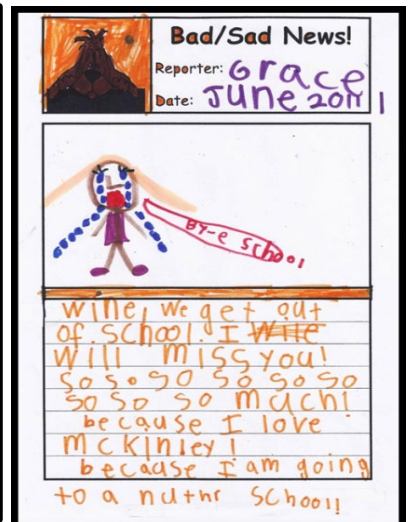 Bad/Sad News!
Reporter: Grace
Date: June 2011
BY-e school
wine, we get out
of school. I Wile
will miss you!
so so so so so so
so so so much!
because I love
mckinley!
because I am going
to a nuthr school!